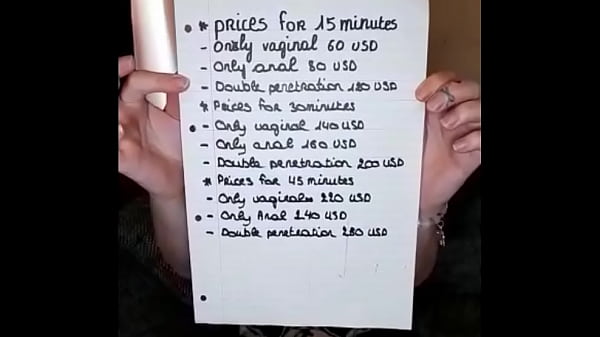 * prices for 15 minutes
- Only vaginal 60 USD
- Only anal 80 USD
- Double penetration 180 USD
* Prices for 30 minutes
- Only vaginal 140 USD
- Only anal 160 USD
- Double penetration 200 USD
* Prices for 45 minutes
- Only vaginal 220 USD
- Only Anal 240 USD
- Double penetration 280 USD